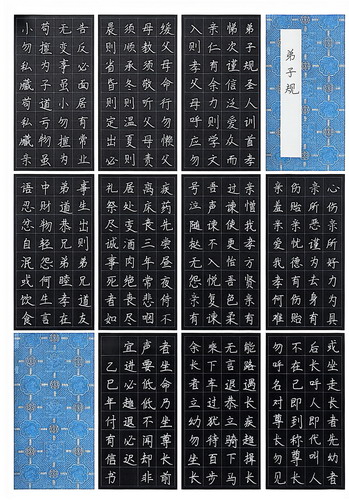 弟子规
弟子规圣人训首孝
悌次谨信泛爱众而
亲仁有余力则学文
入则孝父母呼应勿
缓父母命行勿懒父
母教须敬听父母责
须顺承冬则温夏则
晨则省昏则定出必
告反必面居有常业
无变事虽小勿擅为
苟擅为子道亏物虽
小勿私藏苟私藏亲
心伤亲所好力为具
亲所恶谨为去身有
伤贻亲忧德有伤贻
亲羞亲爱我孝何难
亲憎我孝方贤亲有
过谏使更怡吾色柔
吾声谏不入悦复谏
号泣随挞无怨亲有
疾药先尝昼夜侍不
离床丧三年常悲咽
居处变酒肉绝丧尽
礼祭尽诚事死者如
事生出则弟兄道友
弟道恭兄弟睦孝在
中财物轻怨何生言
语忍忿自泯或饮食
或坐走长者先幼者
后长呼人即代叫人
不在己即到称尊长
勿呼名对尊长勿见
能路遇长疾趋揖长
无言退恭立骑下马
乘下车过犹待百步
余长者立幼勿坐长
者坐命乃坐尊长前
声要低低不闻却非
宜进必趋退必迟
乙巳年付有信书